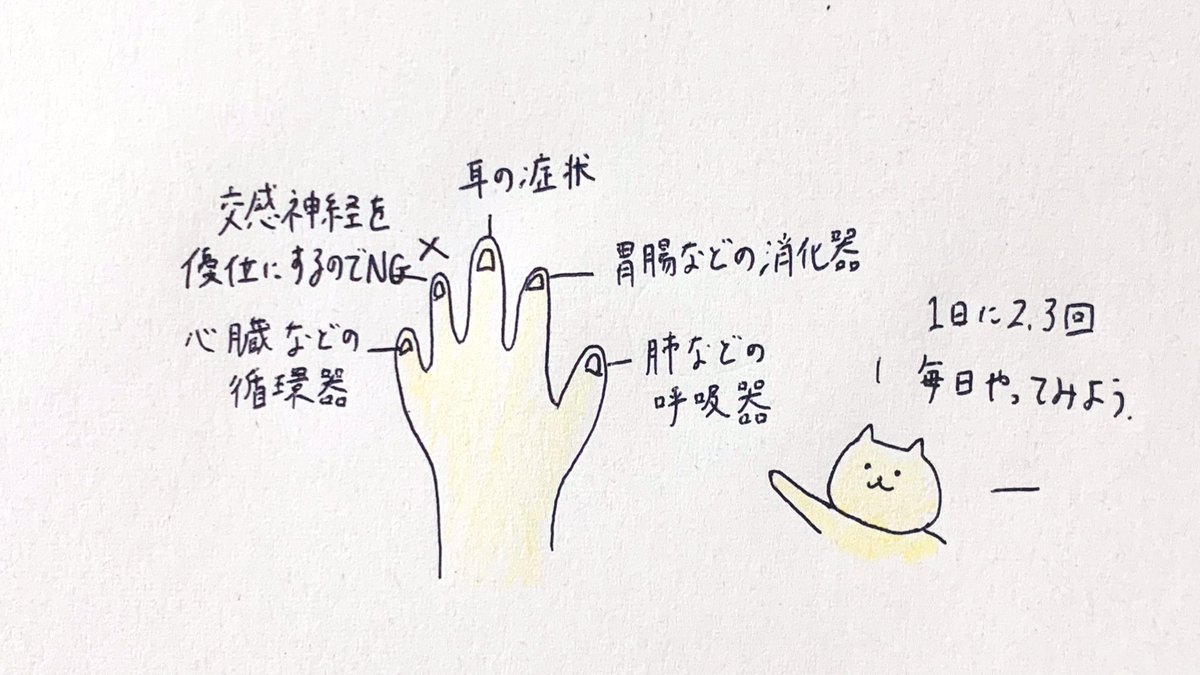 耳の症状
交感神経を
優位にするのでNG
×
胃腸などの消化器
心臓などの
循環器
肺などの
呼吸器
1日に2.3回
毎日やってみよう.